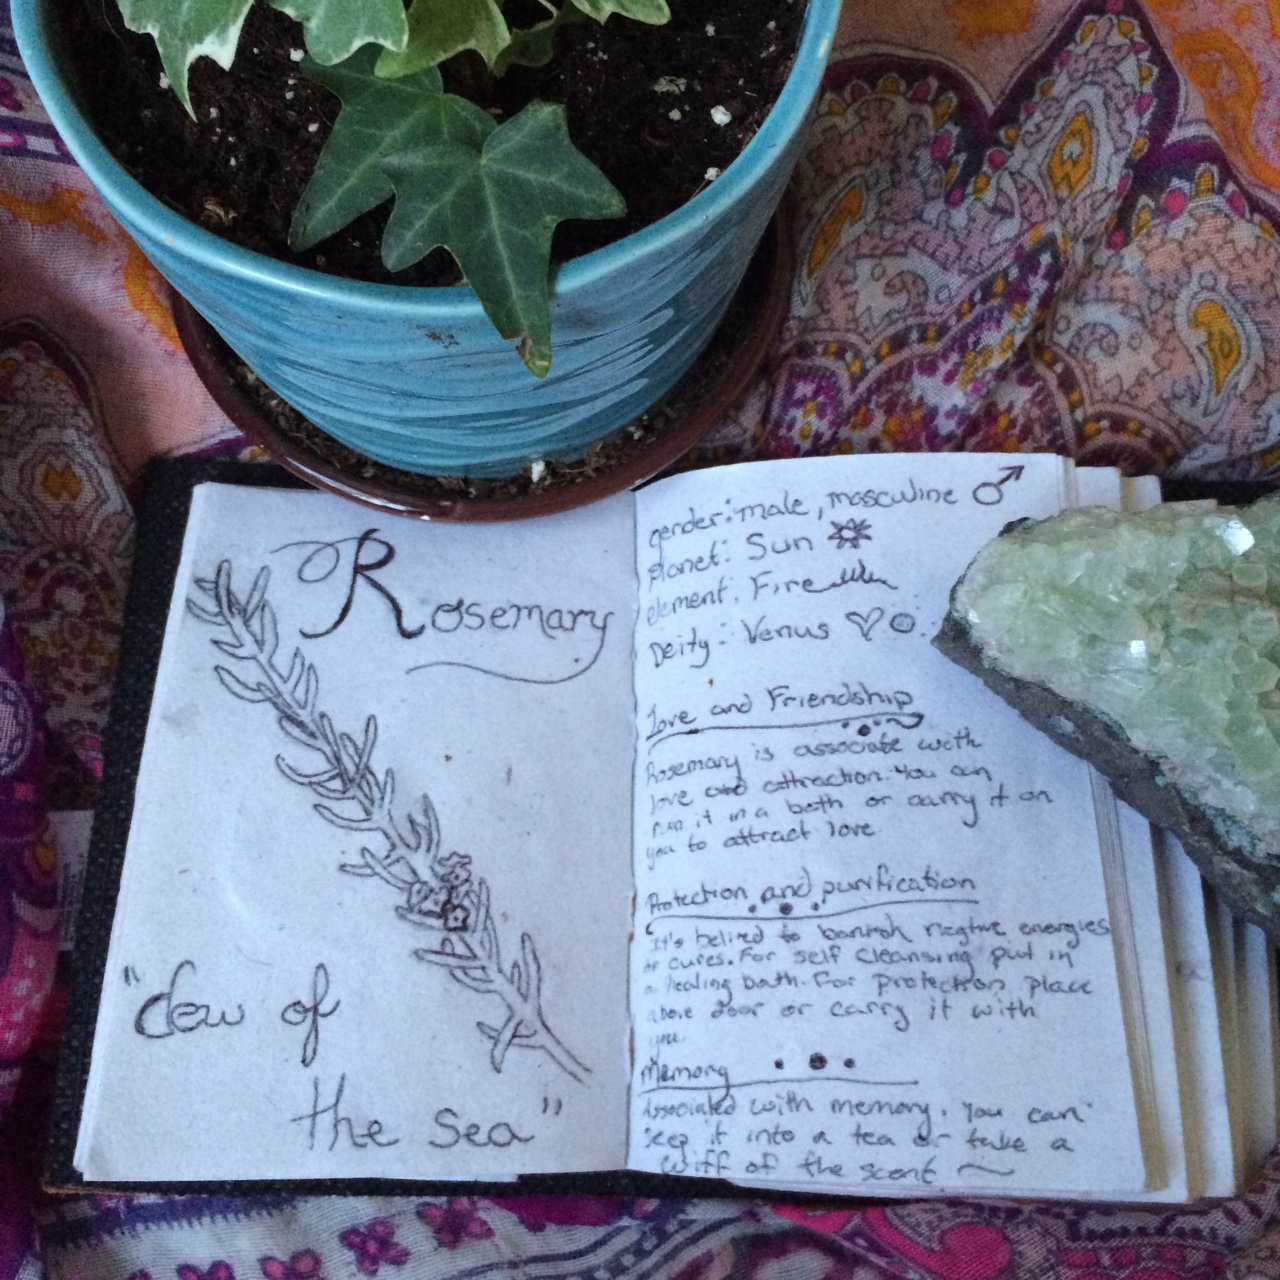 Rosemary
"dew of
the sea"
gender: male, masculine ♂
planet: Sun
element: Fire
Deity: Venus ♡
Love and Friendship
Rosemary is associate with
love and attraction. You can
run it in a bath or carry it on
you to attract love.
Protection and purification
It's belived to banish negtive energies
or cures. For self cleansing put in
a healing bath. For protection place
above door or carry it with
you.
Memory
Associated with memory. You can
seep it into a tea or take a
wiff of the scent ~